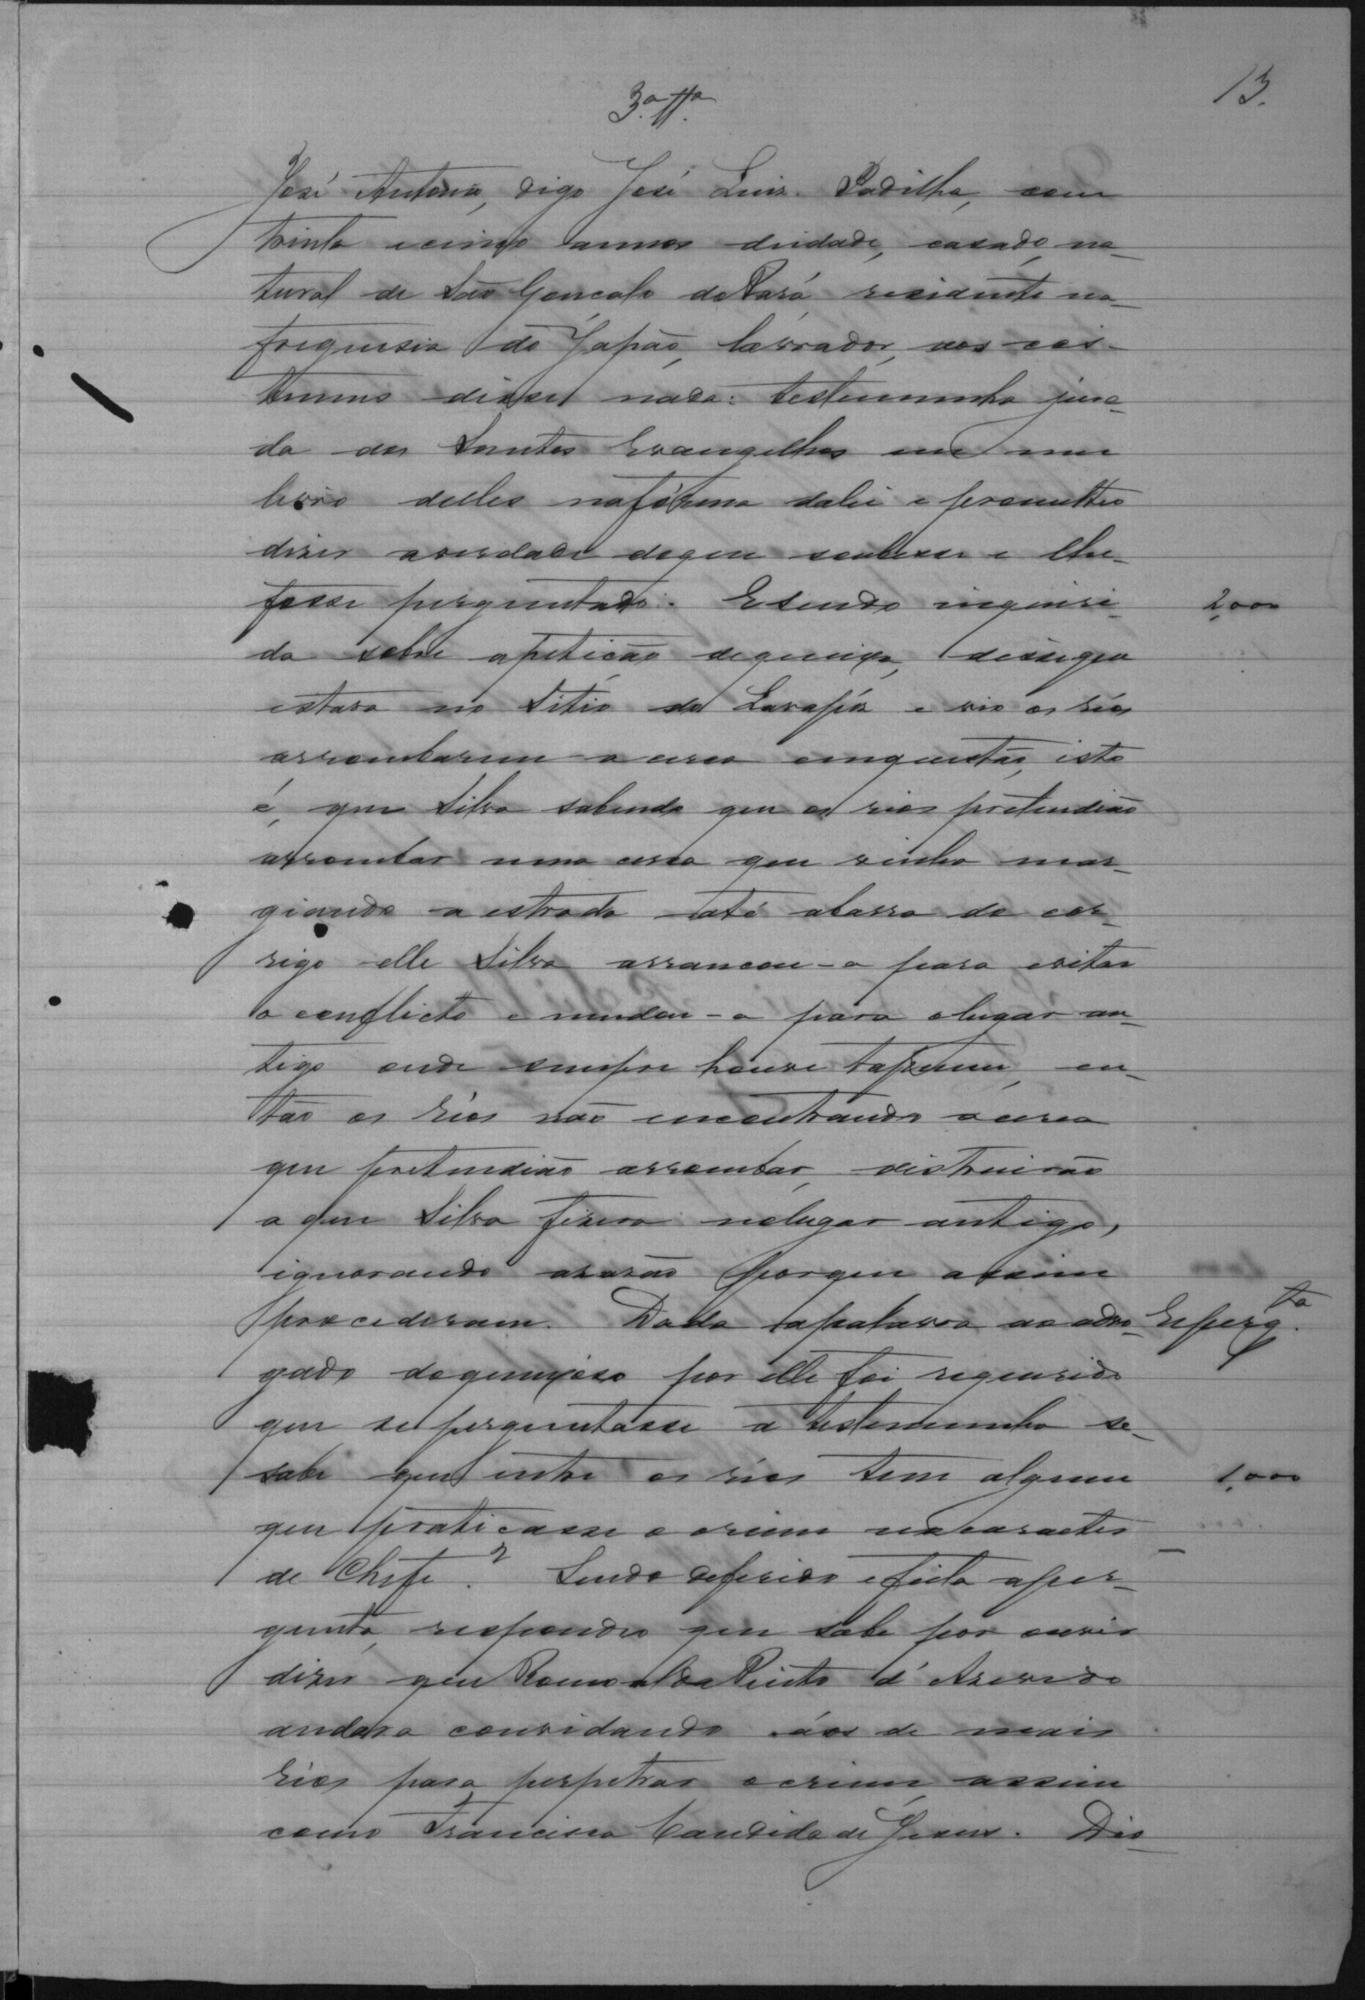 13.
3.ª Tt.ª
José Antonio, digo José Luiz Padilha, com
trinta e cinco annos deidade, casado, na-
tural de São Gonçalo do Pará residente na
freguesia do Japão, lavrador, aos cos-
tumes disse nada: testemunha jura-
da aos Santos Evangelhos em um
livro delles nafórma dalei e prometteo
dizer averdade doque soubesse e lhe
fosse perguntado. Esendo inqueri- 2,000
da sobre apetição dequeixa, disseque
estava no Sitio do Lavapés e vio os réos
arrombarem a cerca emquestão, isto
é, que Silva sabendo que os réos pretendião
arrombar uma cerca que vinha mar-
giando a estrada até abarra do cor-
rego elle Silva arrancou-a para evitar
o conflicto e mudou-a para olugar an-
tigo onde sempre houve tapume, en-
tão os réos não encontrando acerca
que pretendião arrombar, distruirão
a que Silva fizera nolugar antigo,
ignorando arazão porque assim
procederam. Dada apalavra ao advo- Eperg.ta
gado doqueixoso por elle foi requerido
que se perguntasse a testemunha se
sabe que entre os réos tem algum 1,000
que praticasse o crime nocaracter
de Chefe? Sendo deferido efeita aper-
gunta, respondeo que sabe por ouvir
dizer que Romualdo Pinto d'Azevedo
andava convidando áos de mais
réos para perpetrar ocrime, assim
como Francisco Candido de Jesus. Dis-